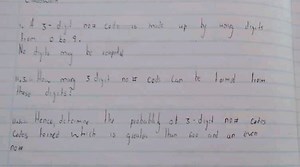 1. A 3-digit no# code is made up by using digits
from 0 to 9.
No digits may be repeated
How many 3 digit no# code can be formed from
these digits?
Hence, determine the probability of 3-digit no# codes
codes formed which is greater than and an even
no#